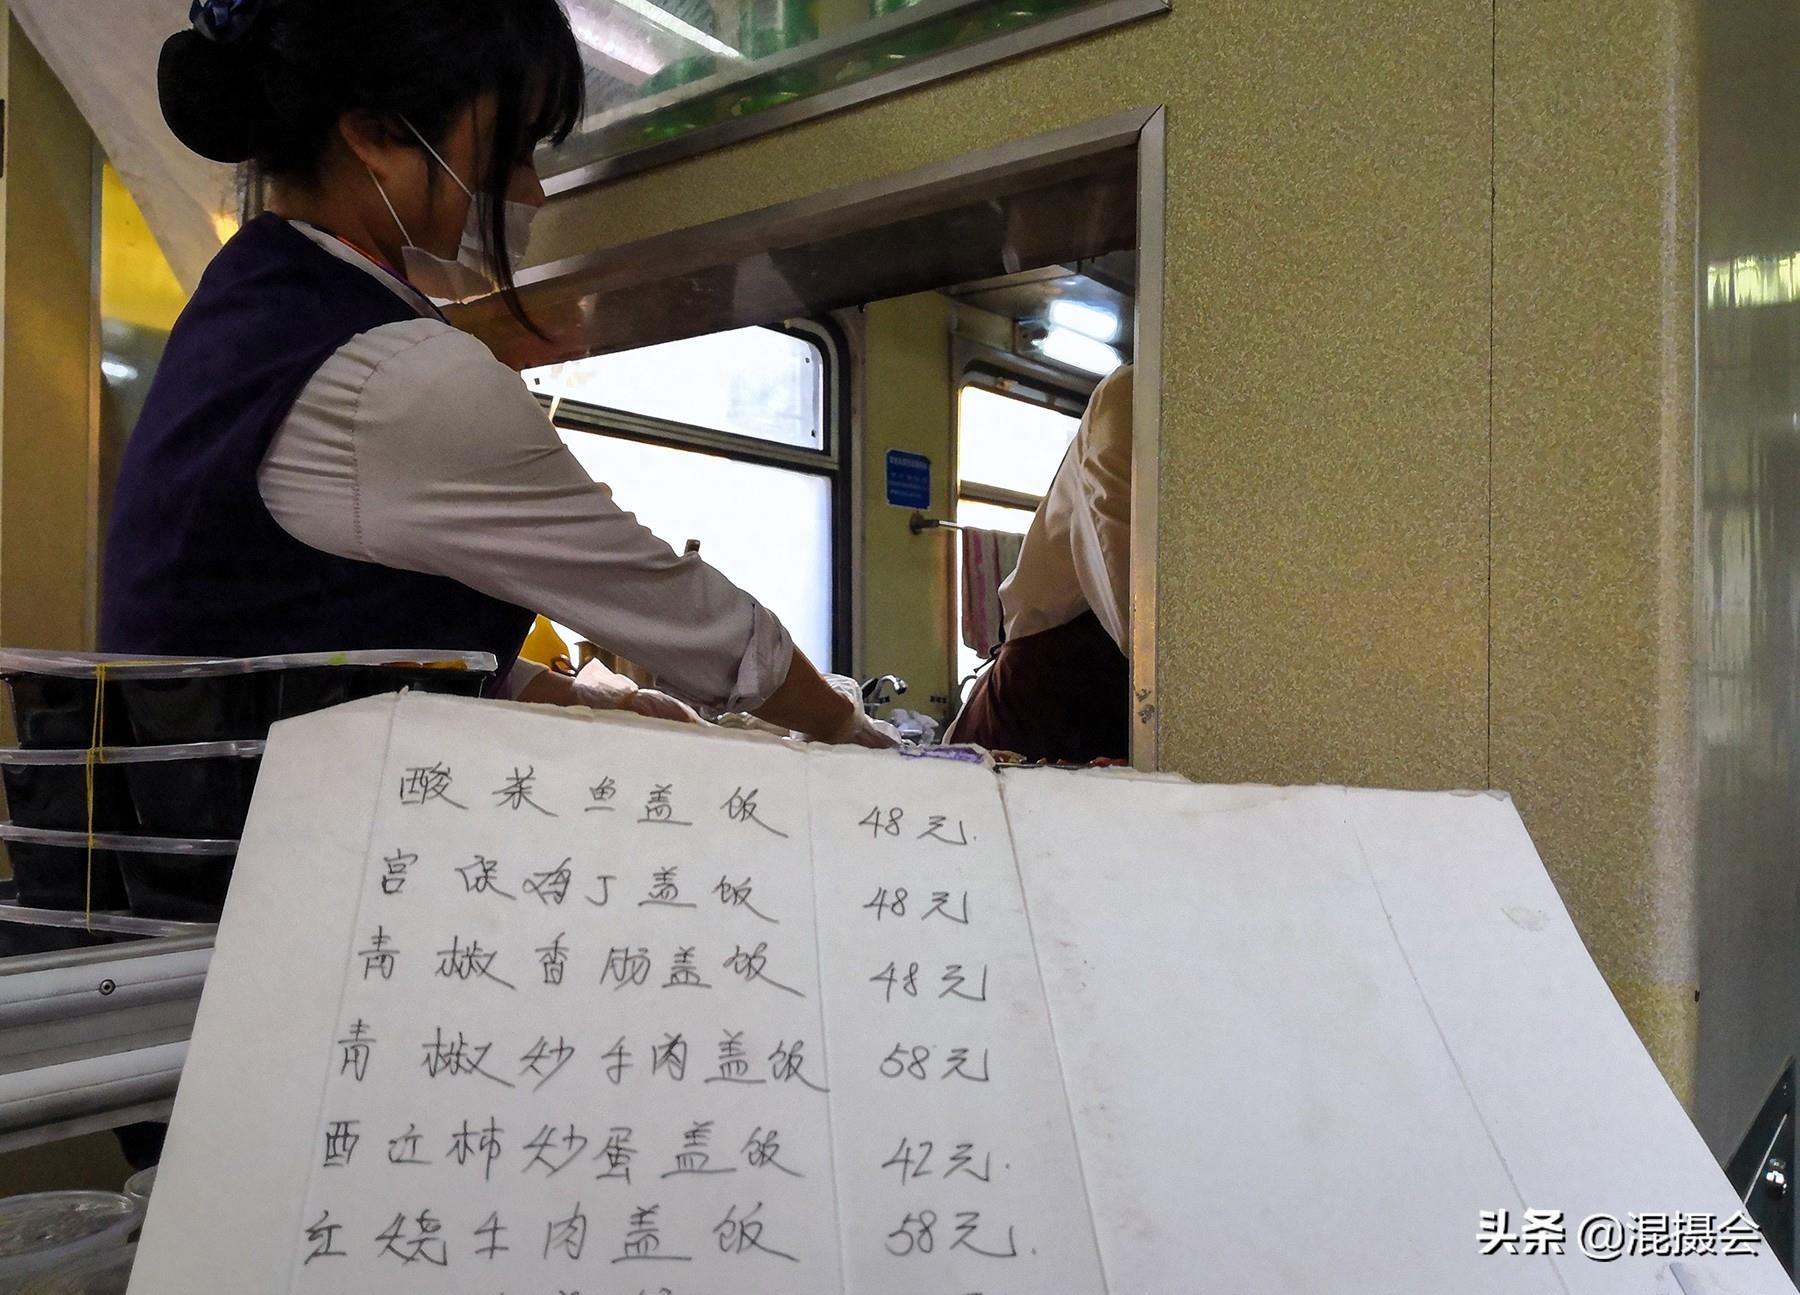 酸菜鱼盖饭 48元.
宫保鸡丁盖饭 48元
青椒香肠盖饭 48元
青椒炒牛肉盖饭 58元
西红柿炒蛋盖饭 42元.
红烧牛肉盖饭 58元.
头条 @混摄会